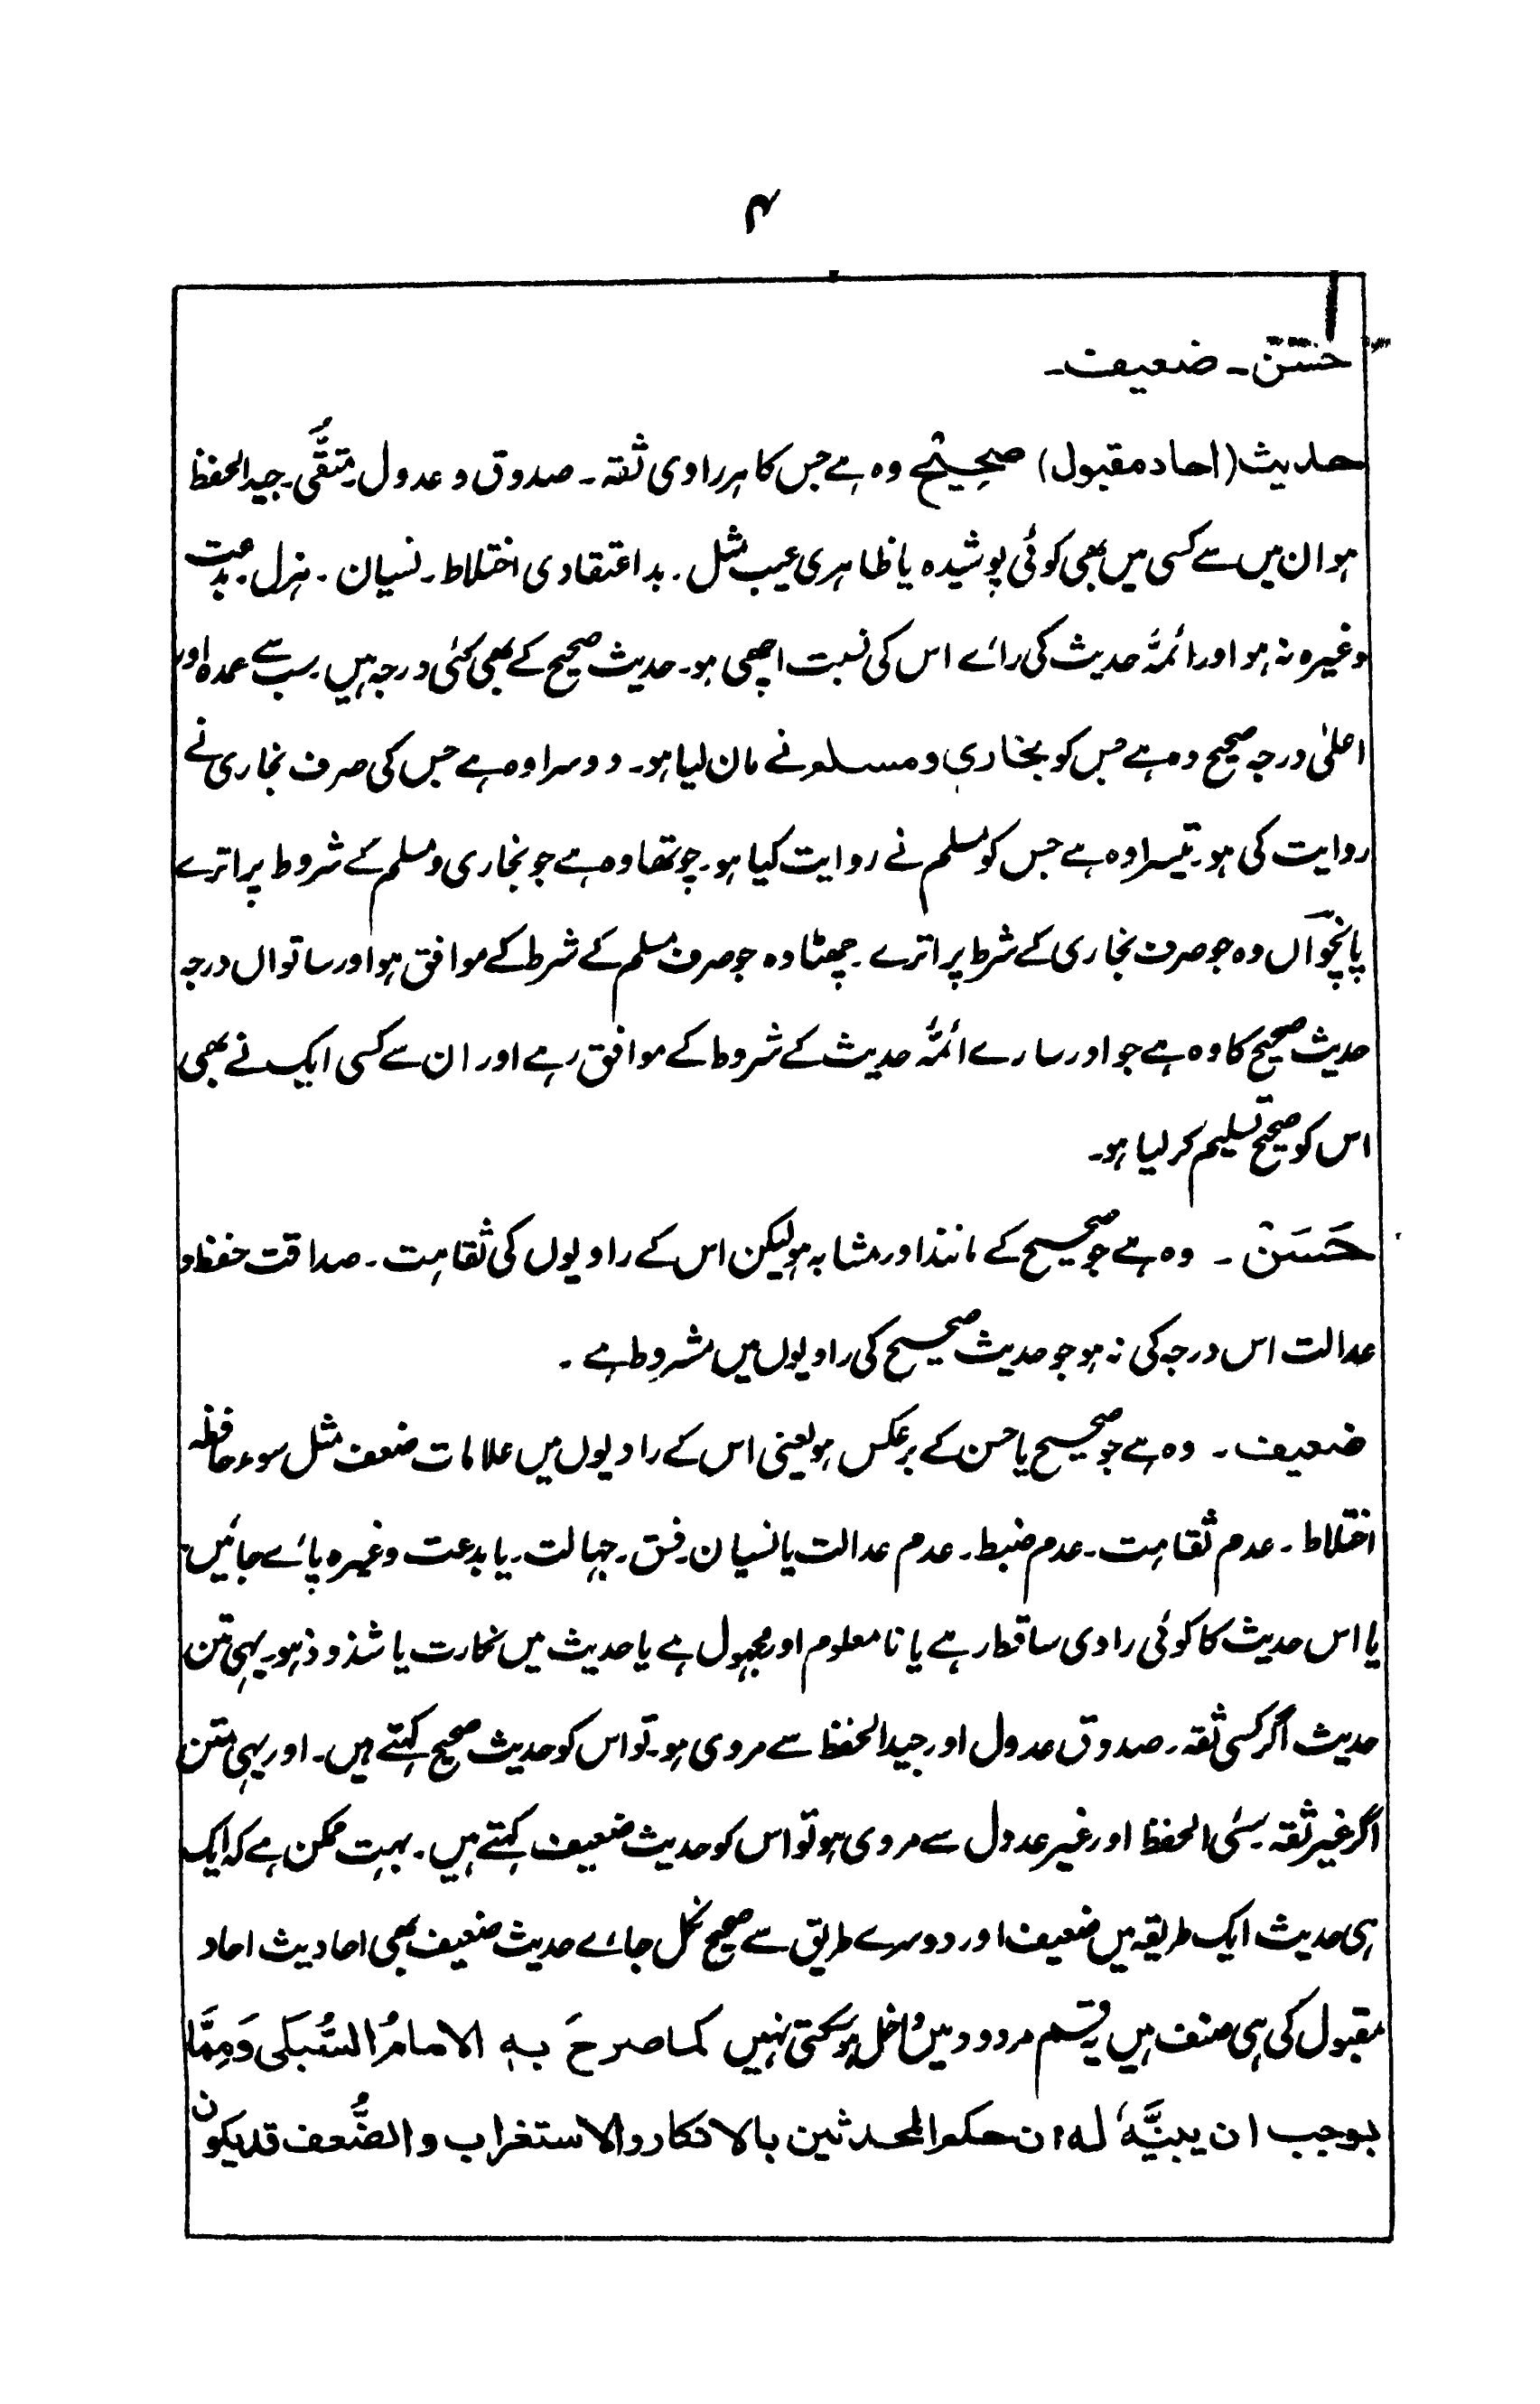 ۴
حسن ۔ ضعیف ۔
حدیث (احاد مقبول) صحیحٌ وہ ہے جس کا ہر راوی ثقہ ۔ صدوق و عدول ۔ متقّی ۔ جید الحفظ
ہو ان میں سے کسی میں بھی کوئی پوشیدہ یا ظاہری عیب مثل ۔ بد اعتقادی اختلاط ۔ نسیان ۔ ہزل ۔ بدعت
وغیرہ نہ ہو اور ائمۂ حدیث کی رائے اس کی نسبت اچھی ہو ۔ حدیث صحیح کے بھی کئی درجہ ہیں ۔ سب سے عمدہ اور
اعلیٰ درجہ صحیح وہ ہے جس کو بخاری و مسلم نے مان لیا ہو ۔ دوسرا وہ ہے جس کی صرف بخاری نے
روایت کی ہو ۔ تیسرا وہ ہے جس کو مسلم نے روایت کیا ہو ۔ چوتھا وہ ہے جو بخاری و مسلم کے شروط پر اترے
پانچواں وہ جو صرف بخاری کے شرط پر اترے ۔ چھٹا وہ جو صرف مسلم کے شرط کے موافق ہو اور ساتواں درجہ
حدیث صحیح کا وہ ہے جو اور سارے ائمۂ حدیث کے شروط کے موافق رہے اور ان سے کسی ایک نے بھی
اس کو صحیح تسلیم کر لیا ہو ۔
حَسَنْ ۔ وہ ہے جو صحیح کے مانند اور مشابہ ہو لیکن اس کے راویوں کی ثقاہت ۔ صداقت حفظ و
عدالت اس درجہ کی نہ ہو جو حدیث صحیح کی راویوں میں مشروط ہے ۔
ضعیف ۔ وہ ہے جو صحیح یا حسن کے برعکس ہو یعنی اس کے راویوں میں علامات ضعف مثل سوء حافظہ
اختلاط ۔ عدم ثقاہت ۔ عدم ضبط ۔ عدم عدالت یا نسیان ۔ فسق ۔ جہالت ۔ یا بدعت وغیرہ پائے جائیں
یا اس حدیث کا کوئی راوی ساقط رہے یا نا معلوم اور مجہول ہے یا حدیث میں نکارت یا شذوذ ہو ۔ یہی متن
حدیث اگر کسی ثقہ ۔ صدوق عدول اور جید الحفظ سے مروی ہو ۔ تو اس کو حدیث صحیح کہتے ہیں ۔ اور یہی متن
اگر غیر ثقہ سئی الحفظ اور غیر عدول سے مروی ہو تو اس کو حدیث ضعیف کہتے ہیں ۔ بہت ممکن ہے کہ ایک
ہی حدیث ایک طریقہ میں ضعیف اور دوسرے طریق سے صحیح نکل جائے حدیث ضعیف بھی احادیث احاد
مقبول کی ہی صنف ہیں یہ قسم مردود میں داخل ہو سکتی نہیں کما صرحَ بہ الامامُ السُّبکی وَمِمَّا
یوجب ان یبنیَّہٗ لہ ان حکم المحدثین بالانکار والاستغراب والضُّعف قد یکون